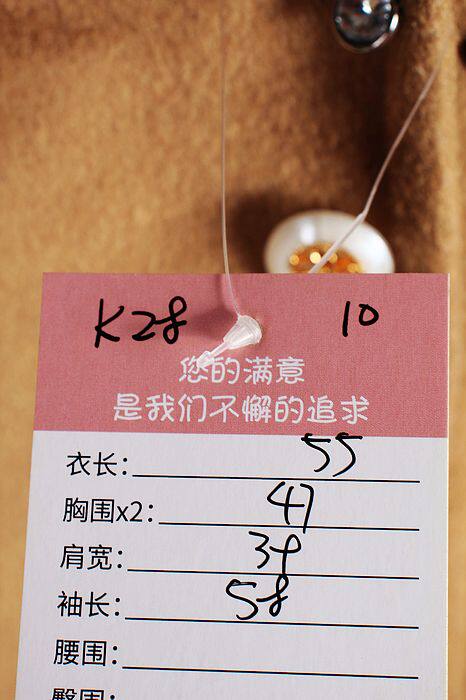 K28 10
您的满意
是我们不懈的追求
衣长: 55
胸围x2: 47
肩宽:
袖长: 58
腰围:
臀围: